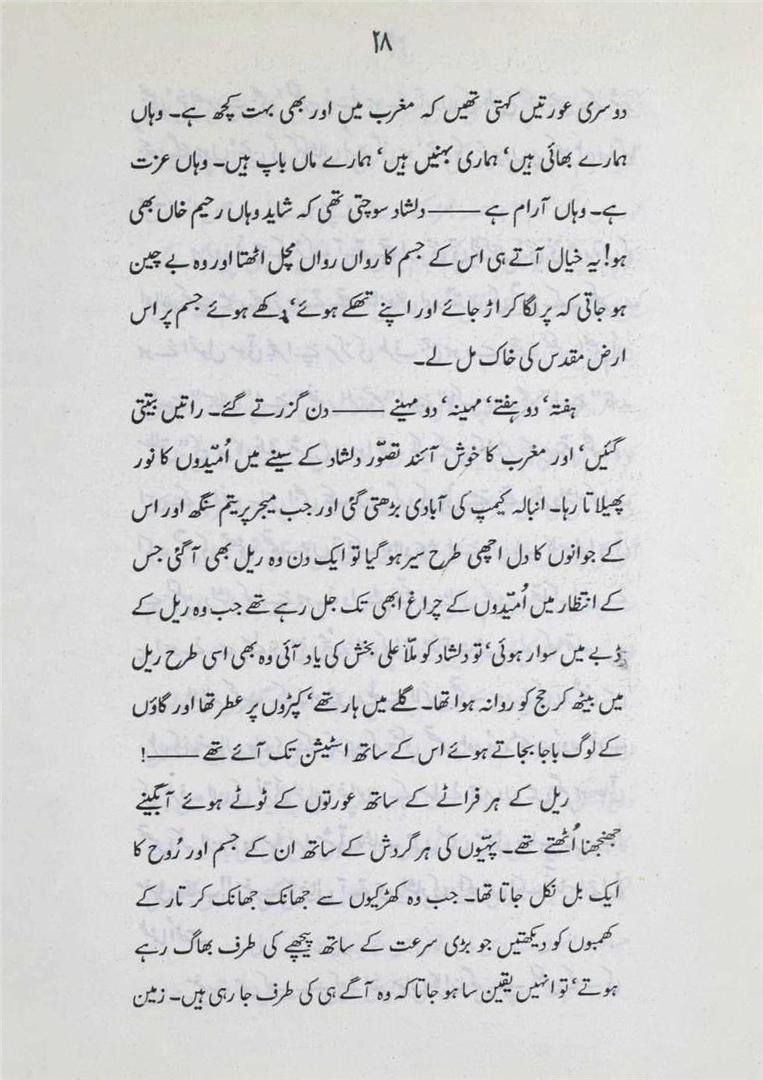 ۲۸
دوسری عورتیں کہتی تھیں کہ مغرب میں اور بھی بہت کچھ ہے۔ وہاں
ہمارے بھائی ہیں‘ ہماری بہنیں ہیں‘ ہمارے ماں باپ ہیں۔ وہاں عزت
ہے۔ وہاں آرام ہے ——— دلشاد سوچتی تھی کہ شاید وہاں رحیم خاں بھی
ہو! یہ خیال آتے ہی اس کے جسم کا رواں رواں مچل اٹھتا اور وہ بے چین
ہو جاتی کہ پر لگا کر اڑ جائے اور اپنے تھکے ہوئے‘ دکھے ہوئے جسم پر اس
ارض مقدس کی خاک مل لے۔
ہفتہ‘ دو ہفتے‘ مہینہ‘ دو مہینے ——— دن گزرتے گئے۔ راتیں بیتتی
گئیں‘ اور مغرب کا خوش آئند تصوّر دلشاد کے سینے میں اُمّیدوں کا نور
پھیلاتا رہا۔ انبالہ کیمپ کی آبادی بڑھتی گئی اور جب میجر پریتم سنگھ اور اس
کے جوانوں کا دل اچھی طرح سیر ہو گیا تو ایک دن وہ ریل بھی آ گئی جس
کے انتظار میں اُمّیدوں کے چراغ ابھی تک جل رہے تھے جب وہ ریل کے
ڈبے میں سوار ہوئی‘ تو دلشاد کو ملّا علی بخش کی یاد آئی وہ بھی اسی طرح ریل
میں بیٹھ کر حج کو روانہ ہوا تھا۔ گلے میں ہار تھے‘ کپڑوں پر عطر تھا اور گاؤں
کے لوگ باجا بجاتے ہوئے اس کے ساتھ اسٹیشن تک آئے تھے ———!
ریل کے ہر فراٹے کے ساتھ عورتوں کے ٹوٹے ہوئے آبگینے
جھنجھنا اُٹھتے تھے۔ پہیّوں کی ہر گردش کے ساتھ ان کے جسم اور رُوح کا
ایک بل نکل جاتا تھا۔ جب وہ کھڑکیوں سے جھانک جھانک کر تار کے
کھمبوں کو دیکھتیں جو بڑی سرعت کے ساتھ پیچھے کی طرف بھاگ رہے
ہوتے‘ تو انہیں یقین سا ہو جاتا کہ وہ آگے ہی کی طرف جا رہی ہیں۔ زمین